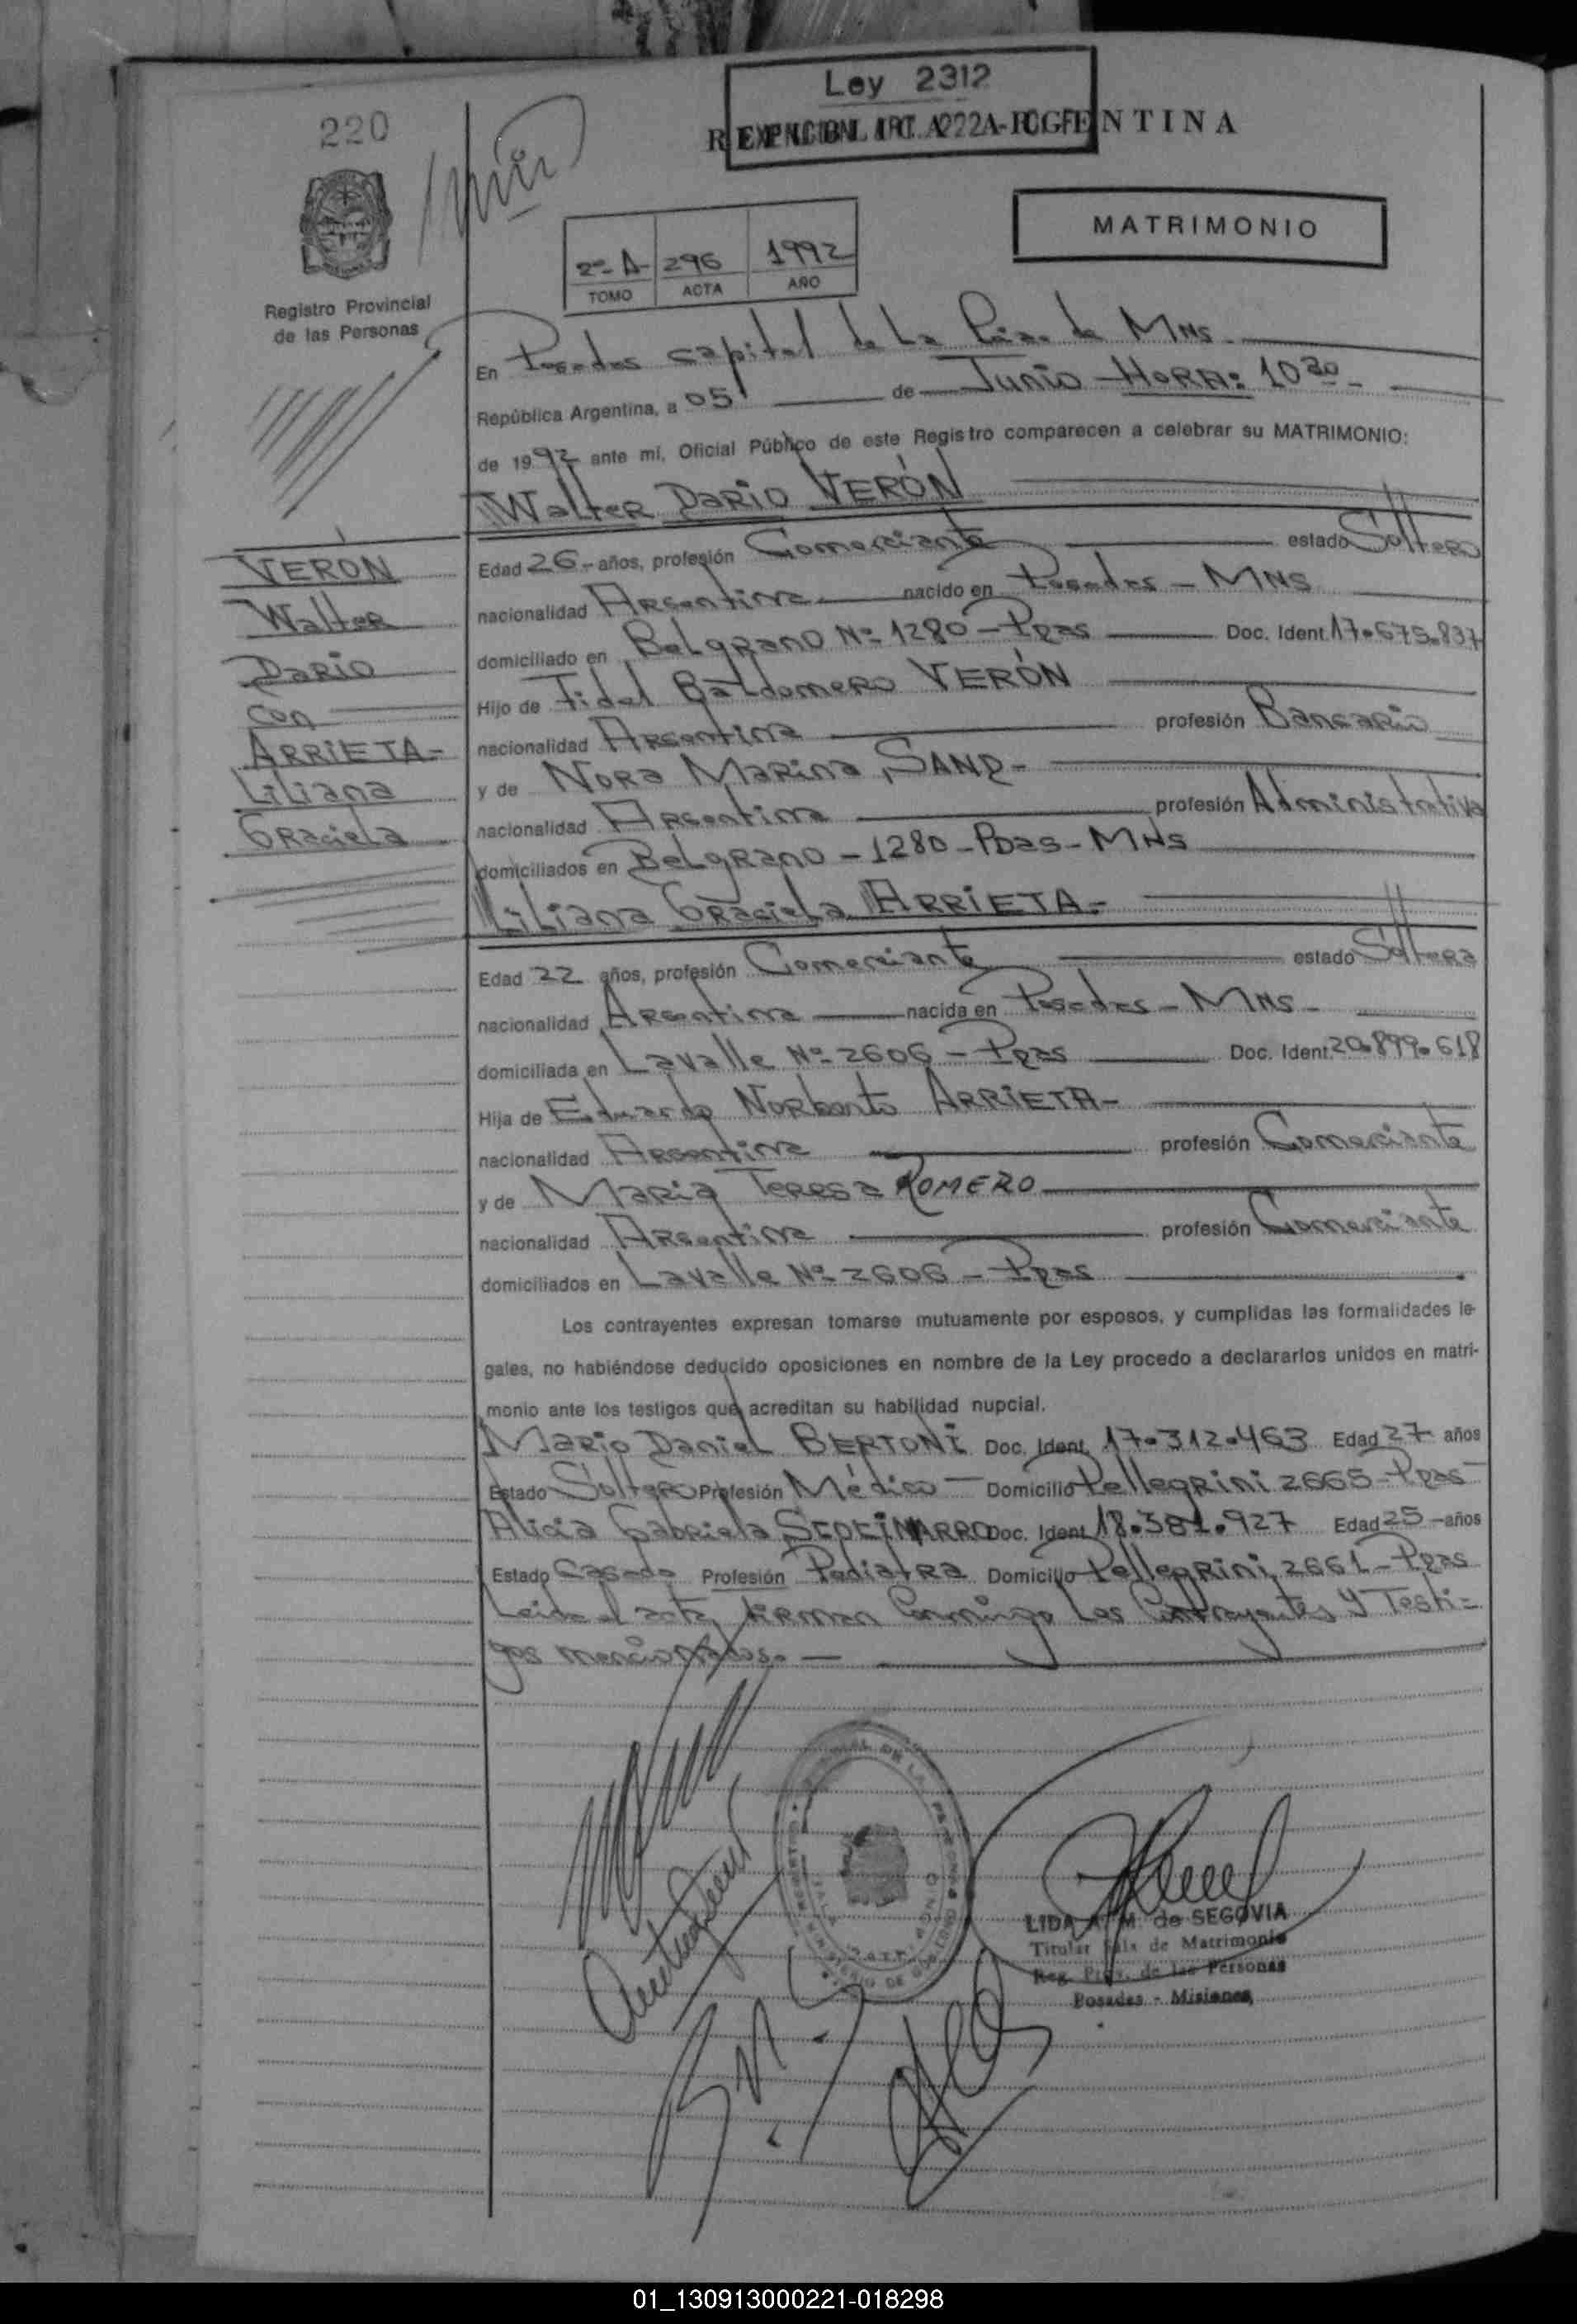 Ley 2312
220
MATRIMONIO
2º A 296 1992
TOMO ACTA AÑO
Registro Provincial
de las Personas
En Posadas capital de La Pcia. de MNS.
República Argentina, a 05 de Junio - HORA: 10 30 -
de 1992 ante mí, Oficial Público de este Registro comparecen a celebrar su MATRIMONIO:
Walter Dario VERÓN
Edad 26 - años, profesión Comerciante estado Soltero
nacionalidad Argentina nacido en Posadas - MNS
domiciliado en Belgrano Nº 1280 - Pdas Doc. Ident. 17.675.837
Hijo de Fidel Baldomero VERÓN
nacionalidad Argentina profesión Bancario
y de Nora Marina SAND -
nacionalidad Argentina profesión Administrativa
domiciliados en Belgrano - 1280 - Pdas - MNS
VERON
Walter
Dario
con
ARRIETA -
Liliana
Graciela
Liliana Graciela ARRIETA -
Edad 22 años, profesión Comerciante estado Soltera
nacionalidad Argentina nacida en Posadas - MNS -
domiciliada en Lavalle Nº 2606 - Pdas Doc. Ident. 20.899.618
Hija de Eduardo Norberto ARRIETA -
nacionalidad Argentina profesión Comerciante
y de Maria Teresa ROMERO
nacionalidad Argentina profesión Comerciante
domiciliados en Lavalle Nº 2606 - Pdas
Los contrayentes expresan tomarse mutuamente por esposos, y cumplidas las formalidades le-
gales, no habiéndose deducido oposiciones en nombre de la Ley procedo a declararlos unidos en matri-
monio ante los testigos que acreditan su habilidad nupcial.
Mario Daniel BERTONI Doc. Ident. 17.312.463 Edad 27 años
Estado Soltero Profesión Médico - Domicilio Pellegrini 2665 - Pdas -
Alicia Gabriela Doc. Ident. 18.381.927 Edad 25 - años
Estado Casada Profesión Pediatra Domicilio Pellegrini 2661 - Pdas
Leida el acta, firman Conmigo Los Contrayentes y Testi=
gos mencionados. -
LIDA A. M. de SEGOVIA
Titular Sala de Matrimonio
Reg. Prov. de las Personas
Posadas - Misiones
01_130913000221-018298